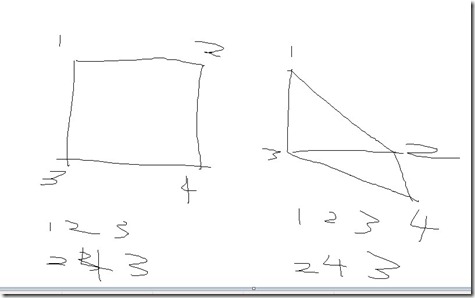 1 2
3 4
1 2 3
2 4 3
1
3 2
4
1 2 3
2 4 3